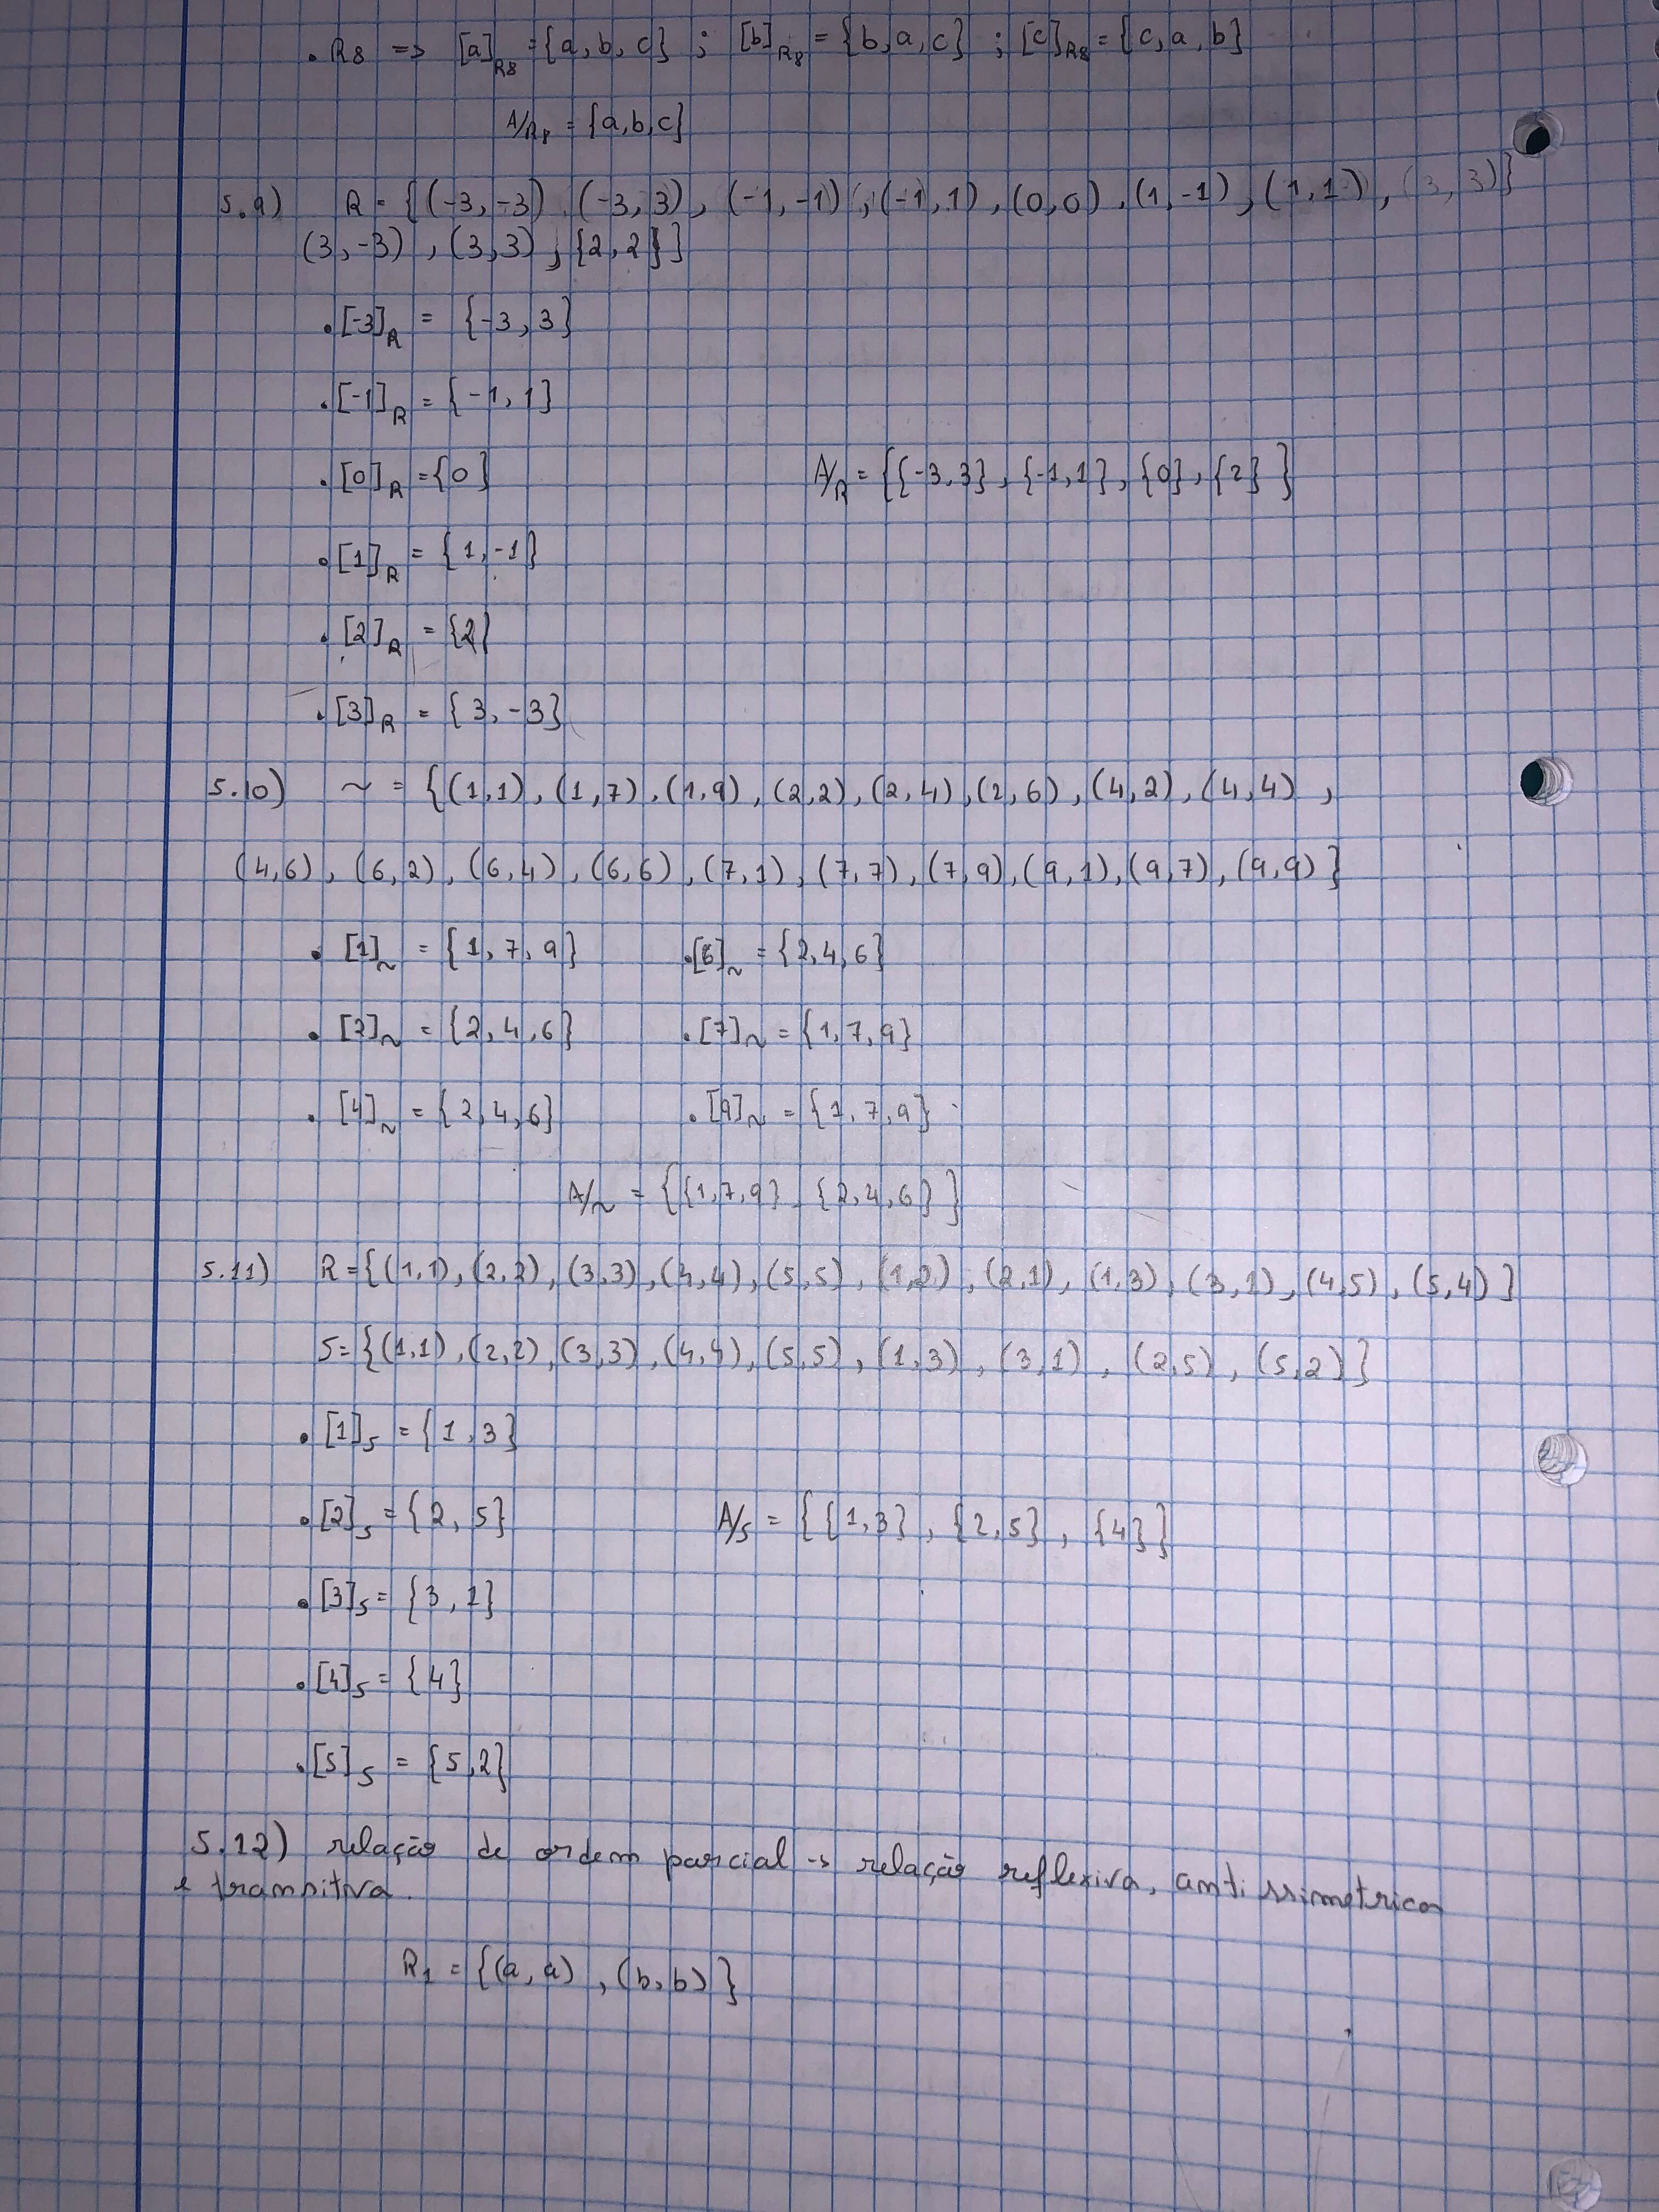 . R8 => [a]R8 = {a, b, c} ; [b]R8 = {b, a, c} ; [c]R8 = {c, a, b}
A/R8 = {a, b, c}
5.9) R = {(-3, -3), (-3, 3), (-1, -1), (-1, 1), (0, 0), (1, -1), (1, 1), (3, 3)}
(3, -3), (3, 3), {2, 2}}
. [-3]R = {-3, 3}
. [-1]R = {-1, 1}
. [0]R = {0} A/R = {{-3, 3}, {-1, 1}, {0}, {2}}
. [1]R = {1, -1}
. [2]R = {2}
. [3]R = {3, -3}
5.10) ~ = {(1,1), (1,7), (1,9), (2,2), (2,4), (2,6), (4,2), (4,4),
(4,6), (6,2), (6,4), (6,6), (7,1), (7,7), (7,9), (9,1), (9,7), (9,9)}
. [1]~ = {1, 7, 9} . [6]~ = {2, 4, 6}
. [2]~ = {2, 4, 6} . [7]~ = {1, 7, 9}
. [4]~ = {2, 4, 6} . [9]~ = {1, 7, 9}
A/~ = {{1, 7, 9}, {2, 4, 6}}
5.11) R = {(1,1), (2,2), (3,3), (4,4), (5,5), (1,2), (2,1), (1,3), (3,1), (4,5), (5,4)}
S = {(1,1), (2,2), (3,3), (4,4), (5,5), (1,3), (3,1), (2,5), (5,2)}
. [1]S = {1, 3}
. [2]S = {2, 5} A/S = {{1, 3}, {2, 5}, {4}}
. [3]S = {3, 1}
. [4]S = {4}
. [5]S = {5, 2}
5.12) relação de ordem parcial -> relação reflexiva, antissimetrica
e transitiva.
R1 = {(a, a), (b, b)}